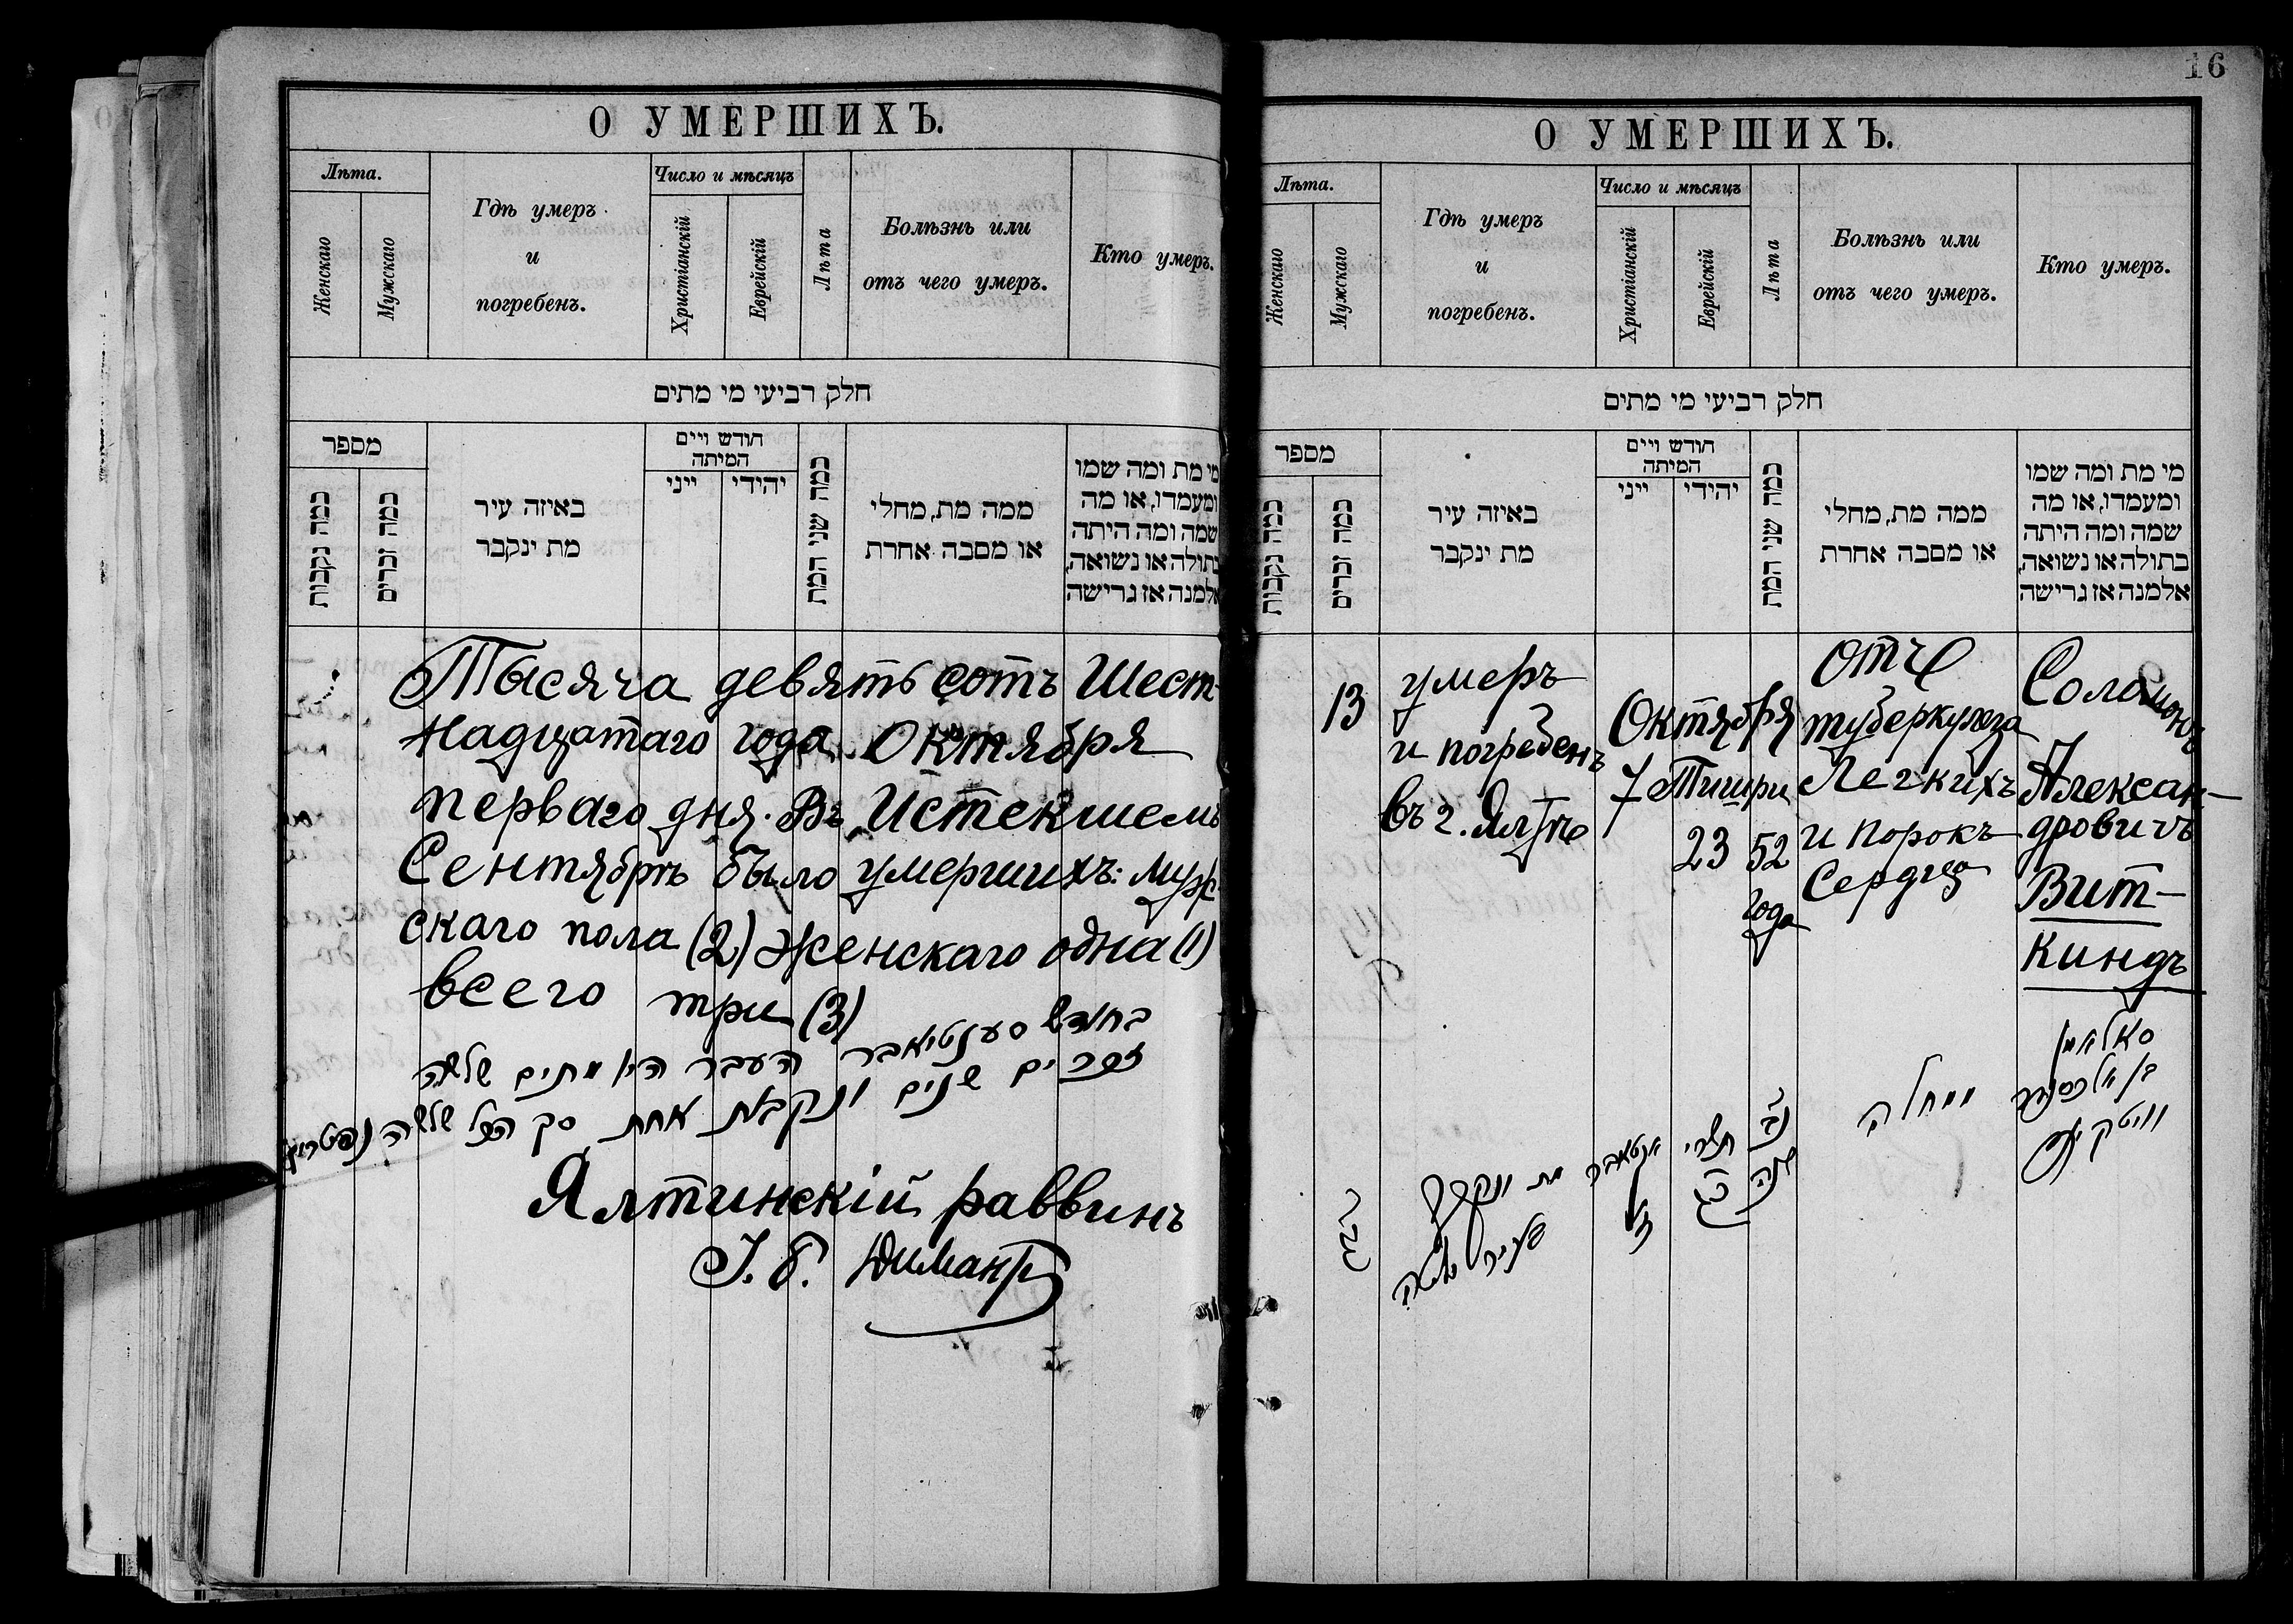 О УМЕРШИХЪ.
Лѣта.
Женскаго
Мужскаго
Гдѣ умеръ
и
погребенъ.
Число и мѣсяцъ
Христіанскій
Еврейскій
Лѣта
Болѣзнь или
отъ чего умеръ.
Кто умеръ.
חלק רביעי מי מתים
מספר
כמה נקבות
כמה זכרים
באיזה עיר
מת ינקבר
חודש ויים
המיתה
ייני
יהודי
כמה שני המת
ממה מת, מחלי
או מסבה אחרת
מי מת ומה שמו
ומעמדו, או מה
שמה ומה היתה
בתולה או נשואה,
אלמנה אז גרישה
Тысяча девять сотъ Шест-
надцатаго года Октября
перваго дня. Въ Истекшемъ
Сентябрѣ было умершихъ: Муж-
скаго пола (2) Женскаго одна (1)
всего три (3)
בחודש סענטיאבר העבר היו מתים שלשה
זכרים שנים ונקבות אחת סך הכל שלשה
Ялтинскій раввинъ
І. б. Димантъ
16
О УМЕРШИХЪ.
Лѣта.
Женскаго
Мужскаго
Гдѣ умеръ
и
погребенъ.
Число и мѣсяцъ
Христіанскій
Еврейскій
Лѣта
Болѣзнь или
отъ чего умеръ.
Кто умеръ.
חלק רביעי מי מתים
מספר
כמה נקבות
כמה זכרים
באיזה עיר
מת ינקבר
חודש ויים
המיתה
ייני
יהודי
כמה שני המת
ממה מת, מחלי
או מסבה אחרת
מי מת ומה שמו
ומעמדו, או מה
שמה ומה היתה
בתולה או נשואה,
אלמנה אז גרישה
13
умеръ
и погребенъ
въ г. Ялтѣ
Октября
7
Тишри
23
52
года
отъ
туберкулеза
Легкихъ
и порокъ
Сердца
Соломонъ
Алексан-
дровичъ
Вит-
киндъ
מת ונקבר
בעיר יאלטה
אקטאבר
תשרי
כג
נב
שנה
ממחלה
סאלאמאן
בן אלכסנדר
וויטקינד